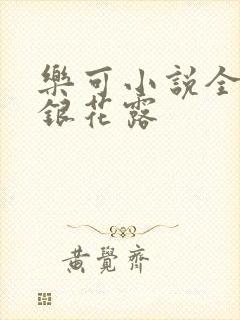 樂可小説全
銀花露
黃覺齊